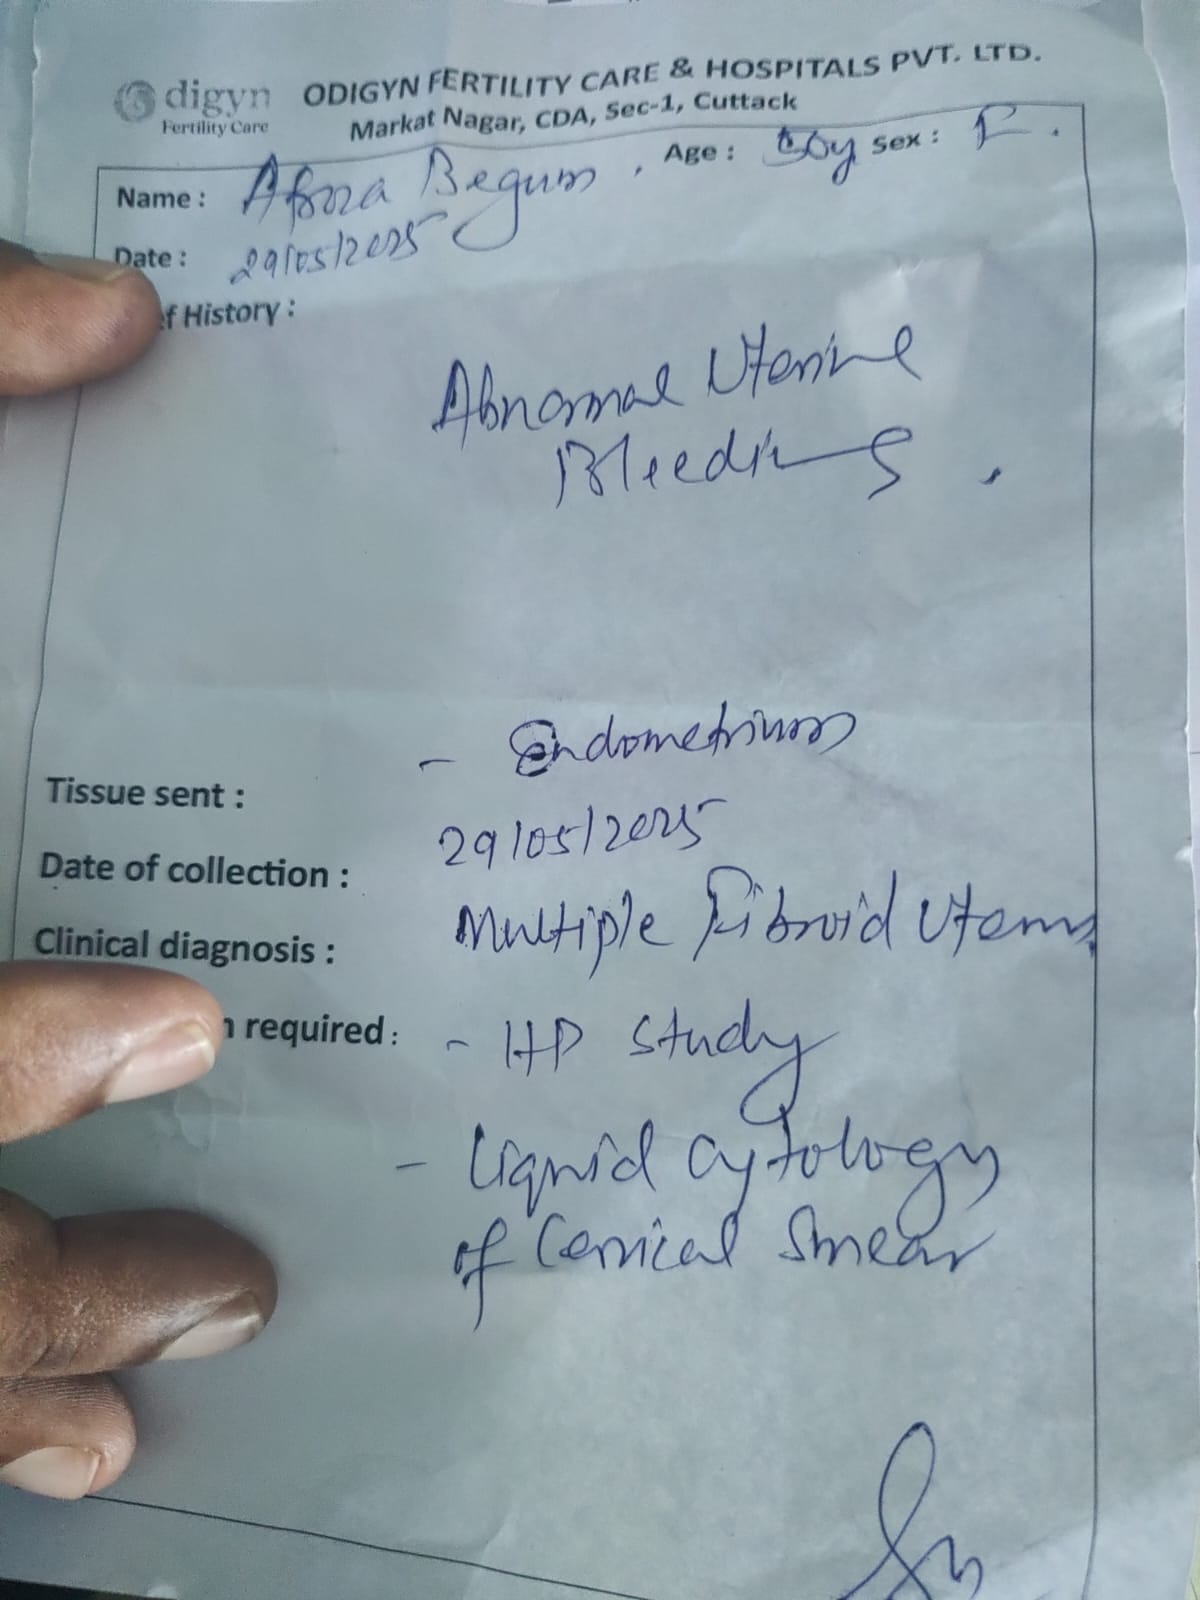 digyn
Fertility Care
ODIGYN FERTILITY CARE & HOSPITALS PVT. LTD.
Markat Nagar, CDA, Sec-1, Cuttack
Name : Begum Age : Sex : F.
Date : 29/05/2025
f History :
Abnormal Uterine
Bleeding .
Tissue sent : - Endometrium
Date of collection : 29/05/2025
Clinical diagnosis : Multiple Fibroid Uterus
required : - HP Study
- Liquid Cytology
of Cervical Smear